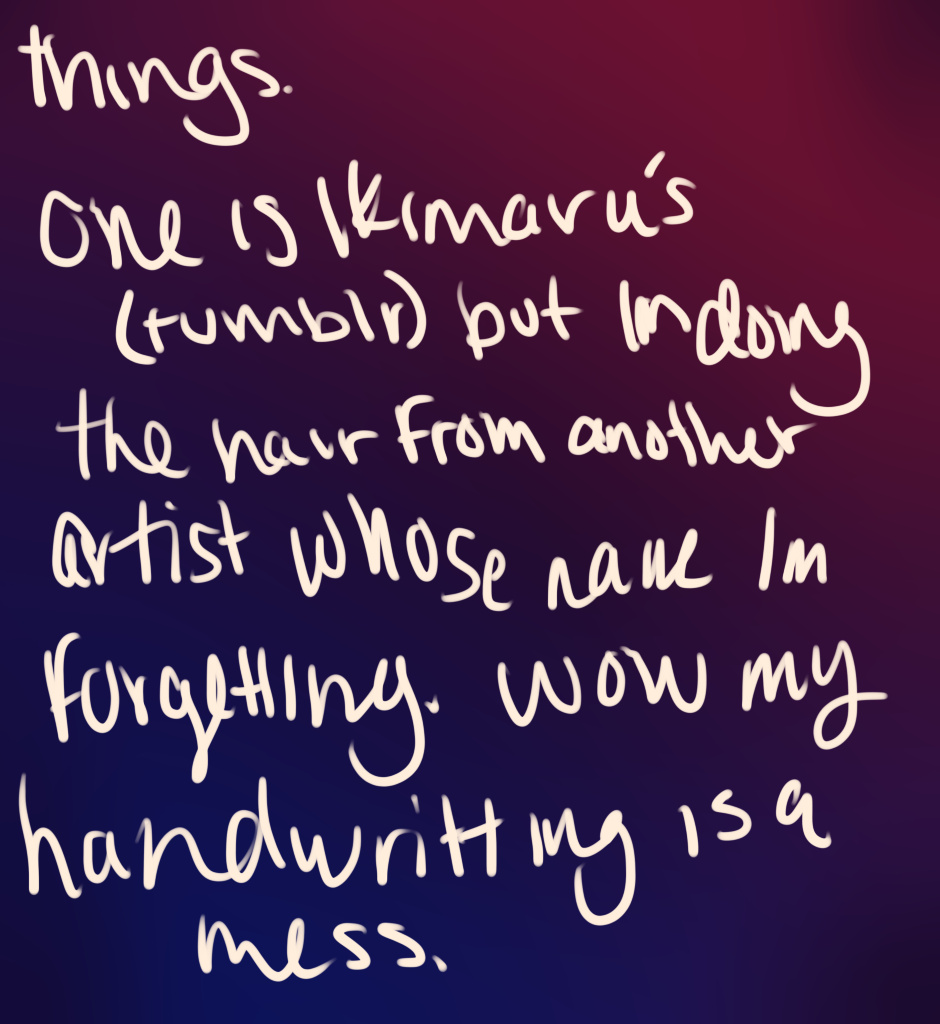 things.
one is Ikimaru's
(tumblr) but Im doing
the hair from another
artist whose name Im
forgetting. wow my
handwritting is a
mess.